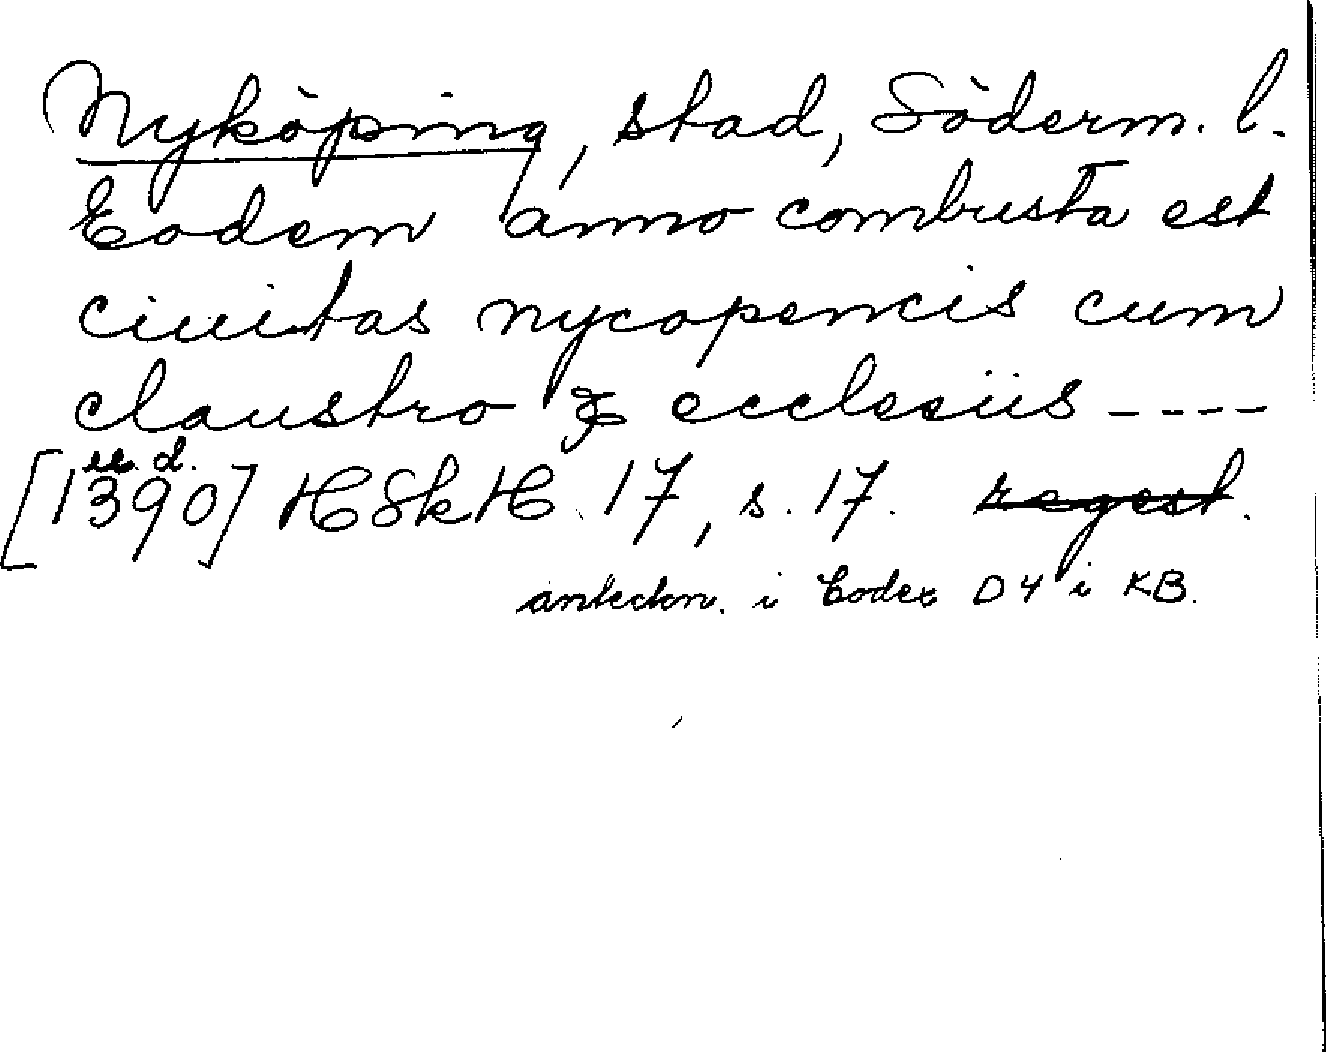 Nyköping, stad, Söderm. l.
Eodem anno combusta est
ciuitas nycopencis cum
claustro & ecclesiis ----
[1390] u. d. HSkH 17, s. 17. regest.
anteckn. i Codex D 4 i KB.